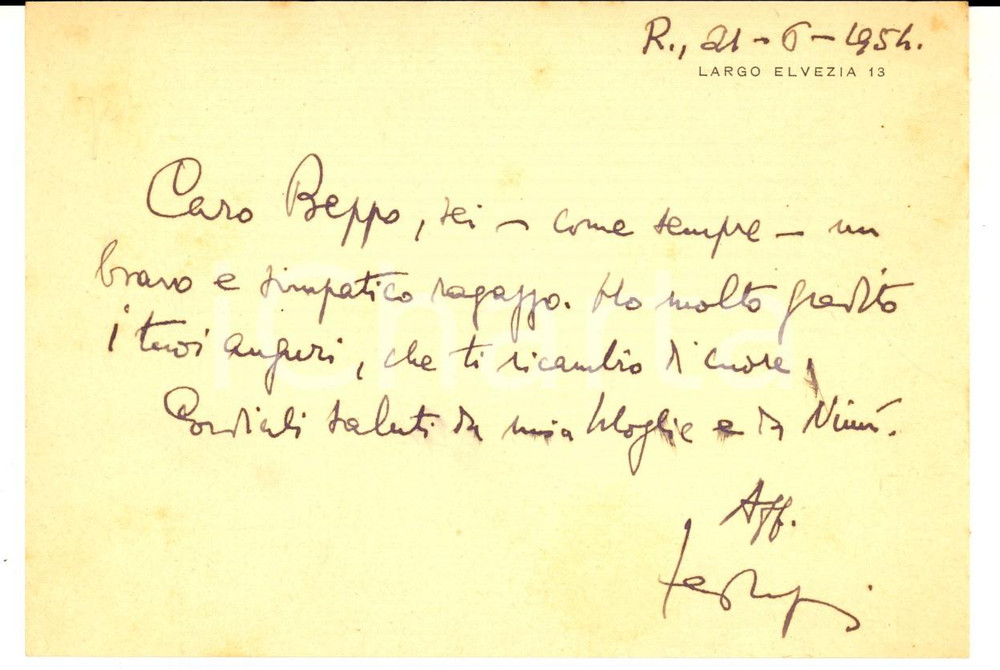 R., 21-6-1954.
LARGO ELVEZIA 13
Caro Beppo, sei - come sempre - un
bravo e simpatico ragazzo. Ho molto gradito
i tuoi auguri, che ti ricambio di cuore.
Cordiali saluti da mia Moglie e da Ninì.
Aff.